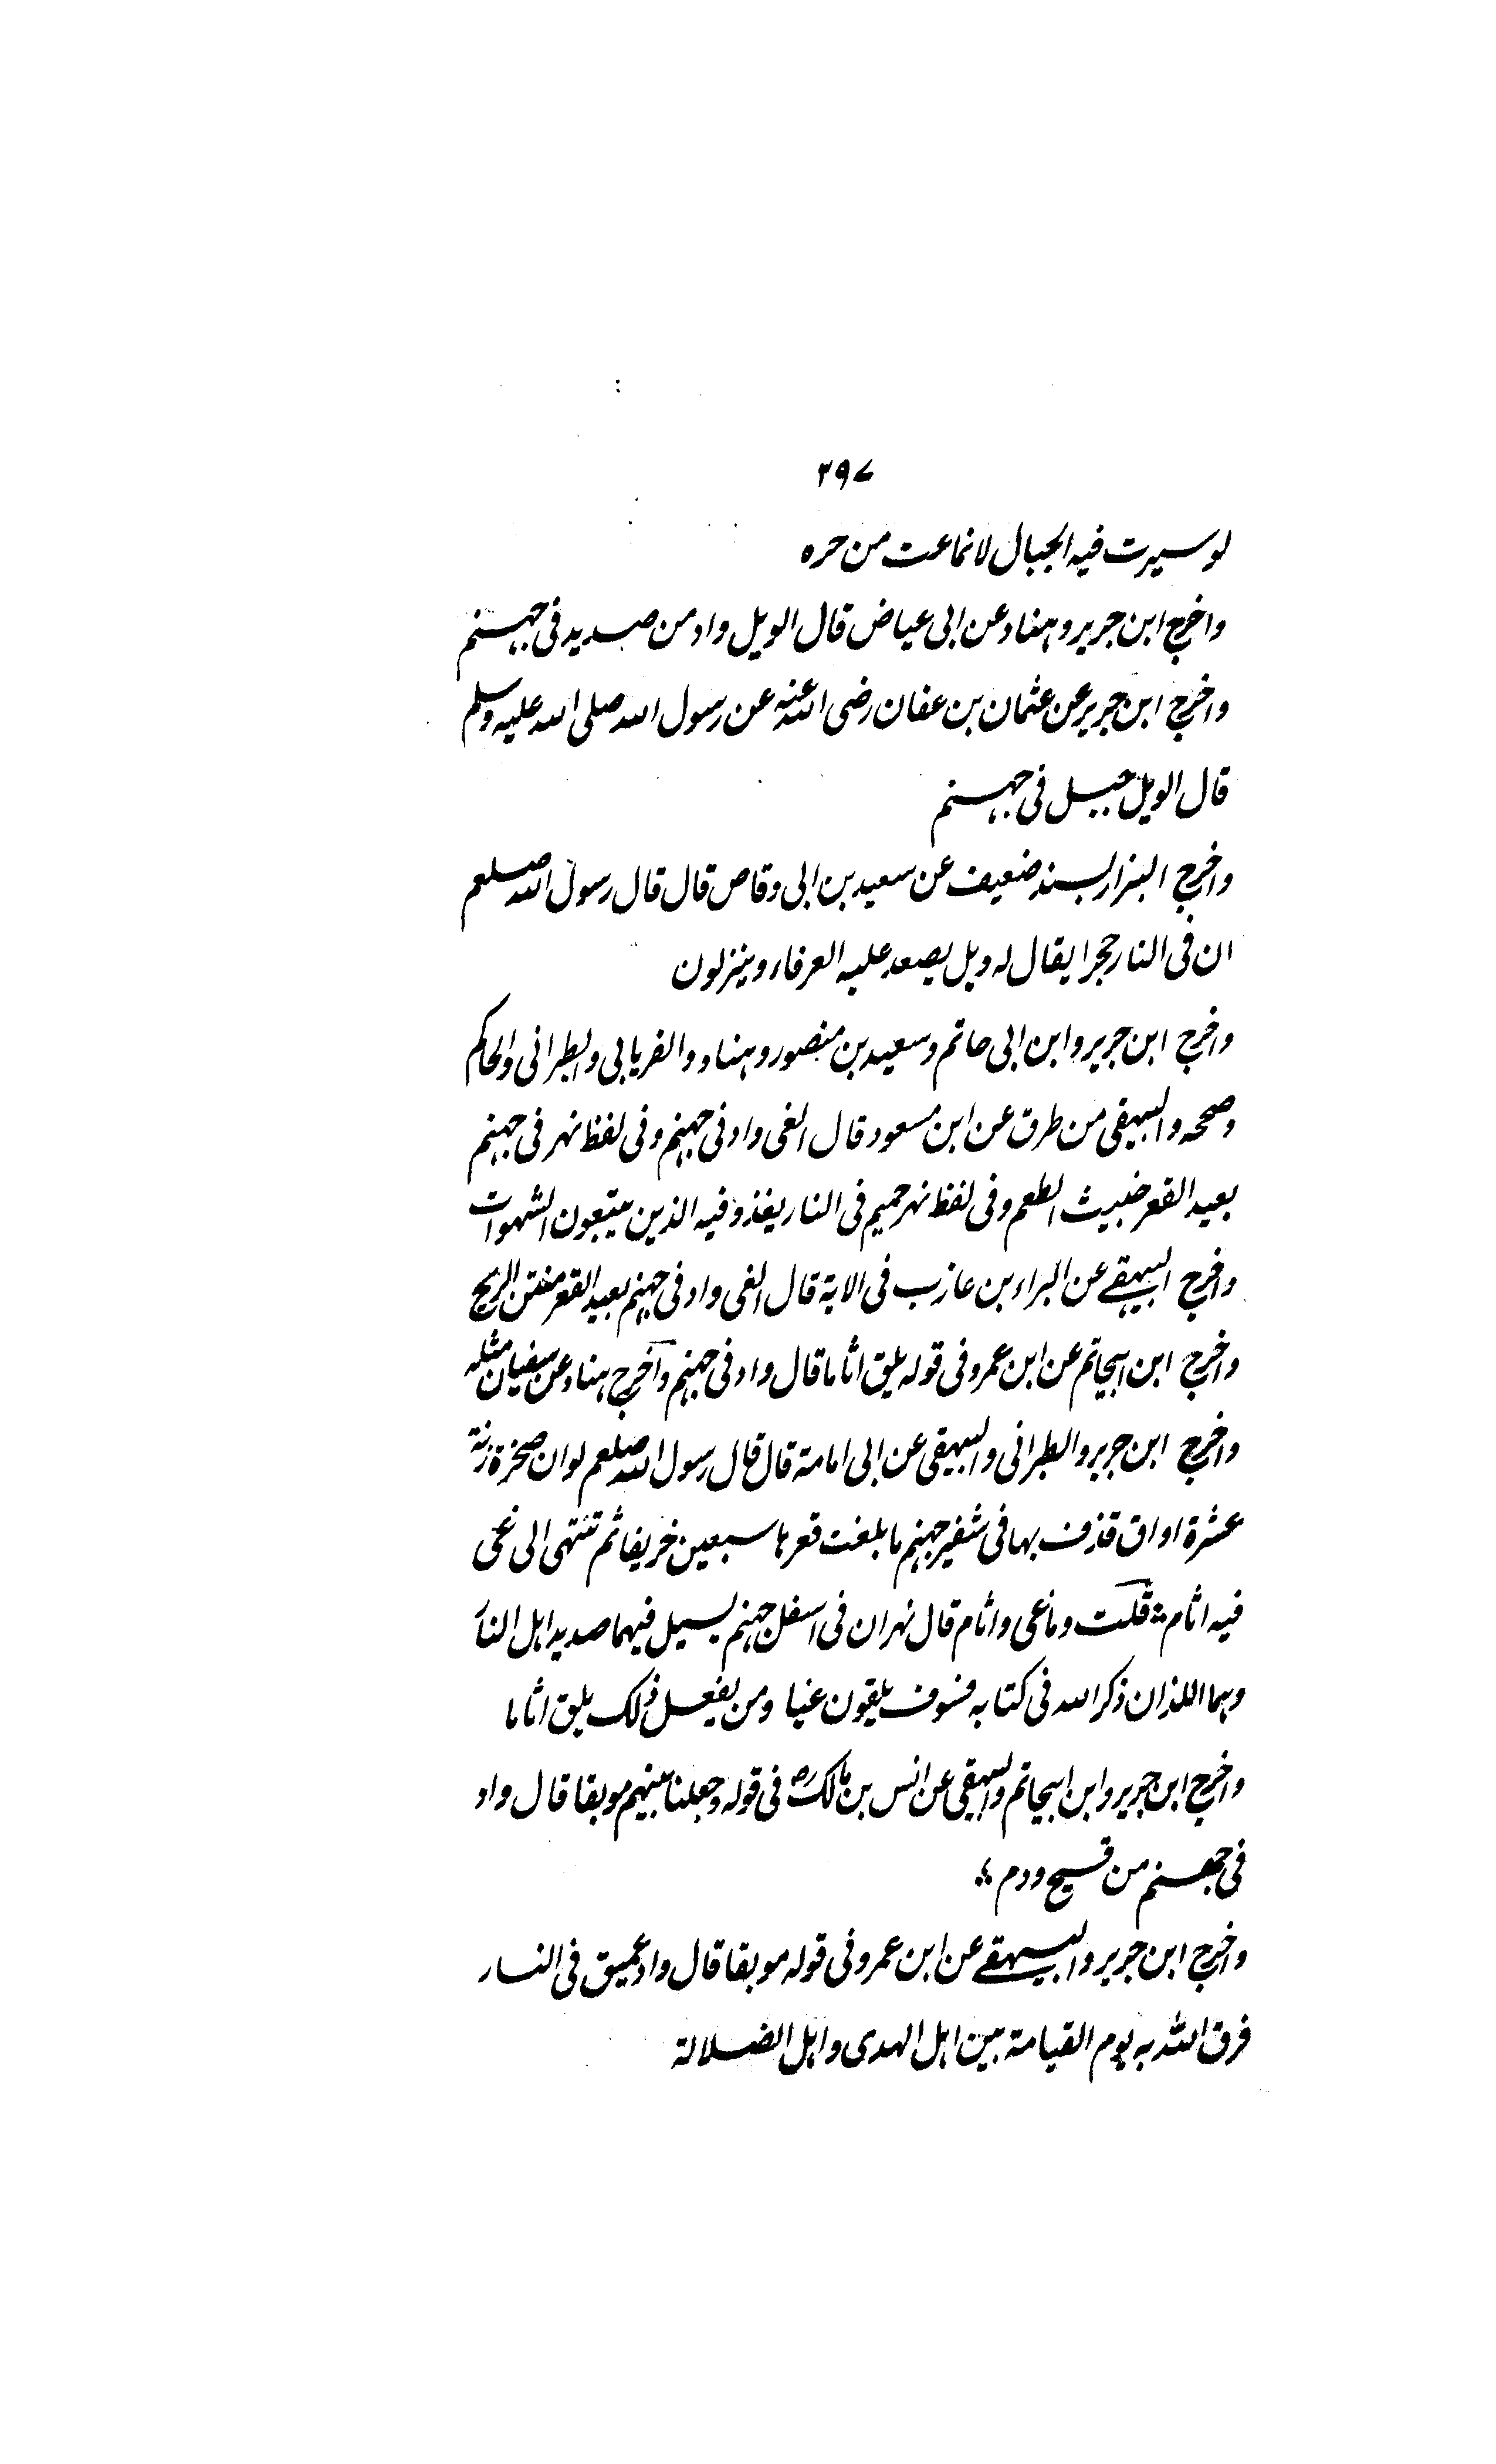 ۳۹۷
لو سیرت فیه الجبال لانماعت من حره
واخرج ابن جریر وہناد عن ابی عیاض قال الویل واد من صدید فی جہنم
واخرج ابن جریر عن عثمان بن عفان رضی الله عنہ عن رسول الله صلی الله علیہ وسلم
قال الویل جبل فی جہنم
واخرج البزار بسند ضعیف عن سعید بن ابی وقاص قال قال رسول الله صلعم
ان فی النار حجرا یقال لہ ویل یصعد علیہ العرفاء وینزلون
واخرج ابن جریر وابن ابی حاتم وسعید بن منصور وہناد والفریابی والطبرانی والحاکم
وصححہ والبیہقی من طرق عن ابن مسعود قال الغی واد فی جہنم وفی لفظ نہر فی جہنم
بعید القعر خبیث الطعم وفی لفظ نہر حمیم فی النار یقذف فیہ الذین یتبعون الشہوات
واخرج البیہقے عن البراء بن عازب فی الایۃ قال الغی واد فی جہنم بعید القعر منتن الریح
واخرج ابن ابیحاتم عن ابن عمرو فی قولہ یلق اثاما قال واد فی جہنم وآخرج ہناد عن سفیان مثلہ
واخرج ابن جریر والطبرانی والبیہقی عن ابی امامۃ قال قال رسول الله صلعم لو ان صخرۃ زنۃ
عشرۃ اواق قذف بہا فی شفیر جہنم ما بلغت قعرہا سبعین خریفا ثم تنتہی الی غی
فیہ اثام قلت وما غی واثام قال نہران فی اسفل جہنم یسیل فیہما صدید اہل النار
وہما اللذان ذکر الله فی کتابہ فسوف یلقون غیا ومن یفعل ذلک یلق اثاما
واخرج ابن جریر وابن ابیحاتم والبیہقی عن انس بن مالک رض فی قولہ وجعلنا بینہم موبقا قال واد
فی جھنم من قیح ودم
واخرج ابن جریر والبیہقے عن ابن عمرو فی قولہ موبقا قال واد عمیق فی النار
فرق الله بہ یوم القیامۃ بین اہل الہدی واہل الضلالۃ